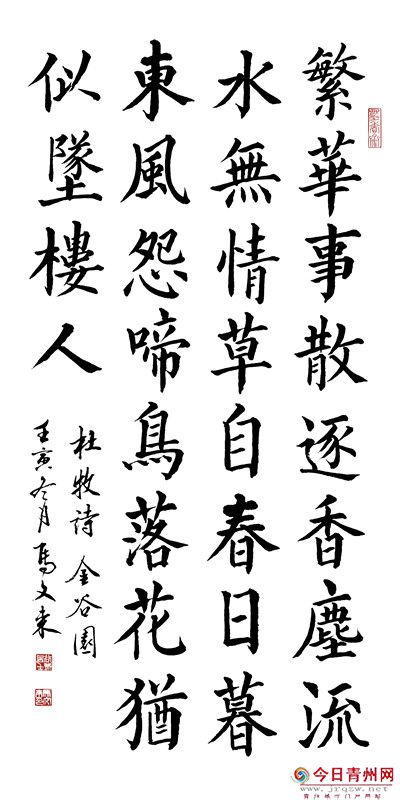 繁華事散逐香塵流
水無情草自春日暮
東風怨啼鳥落花猶
似墜樓人
杜牧詩 金谷園
壬寅冬月馬文東
今日青州网
www.jrqzw.net